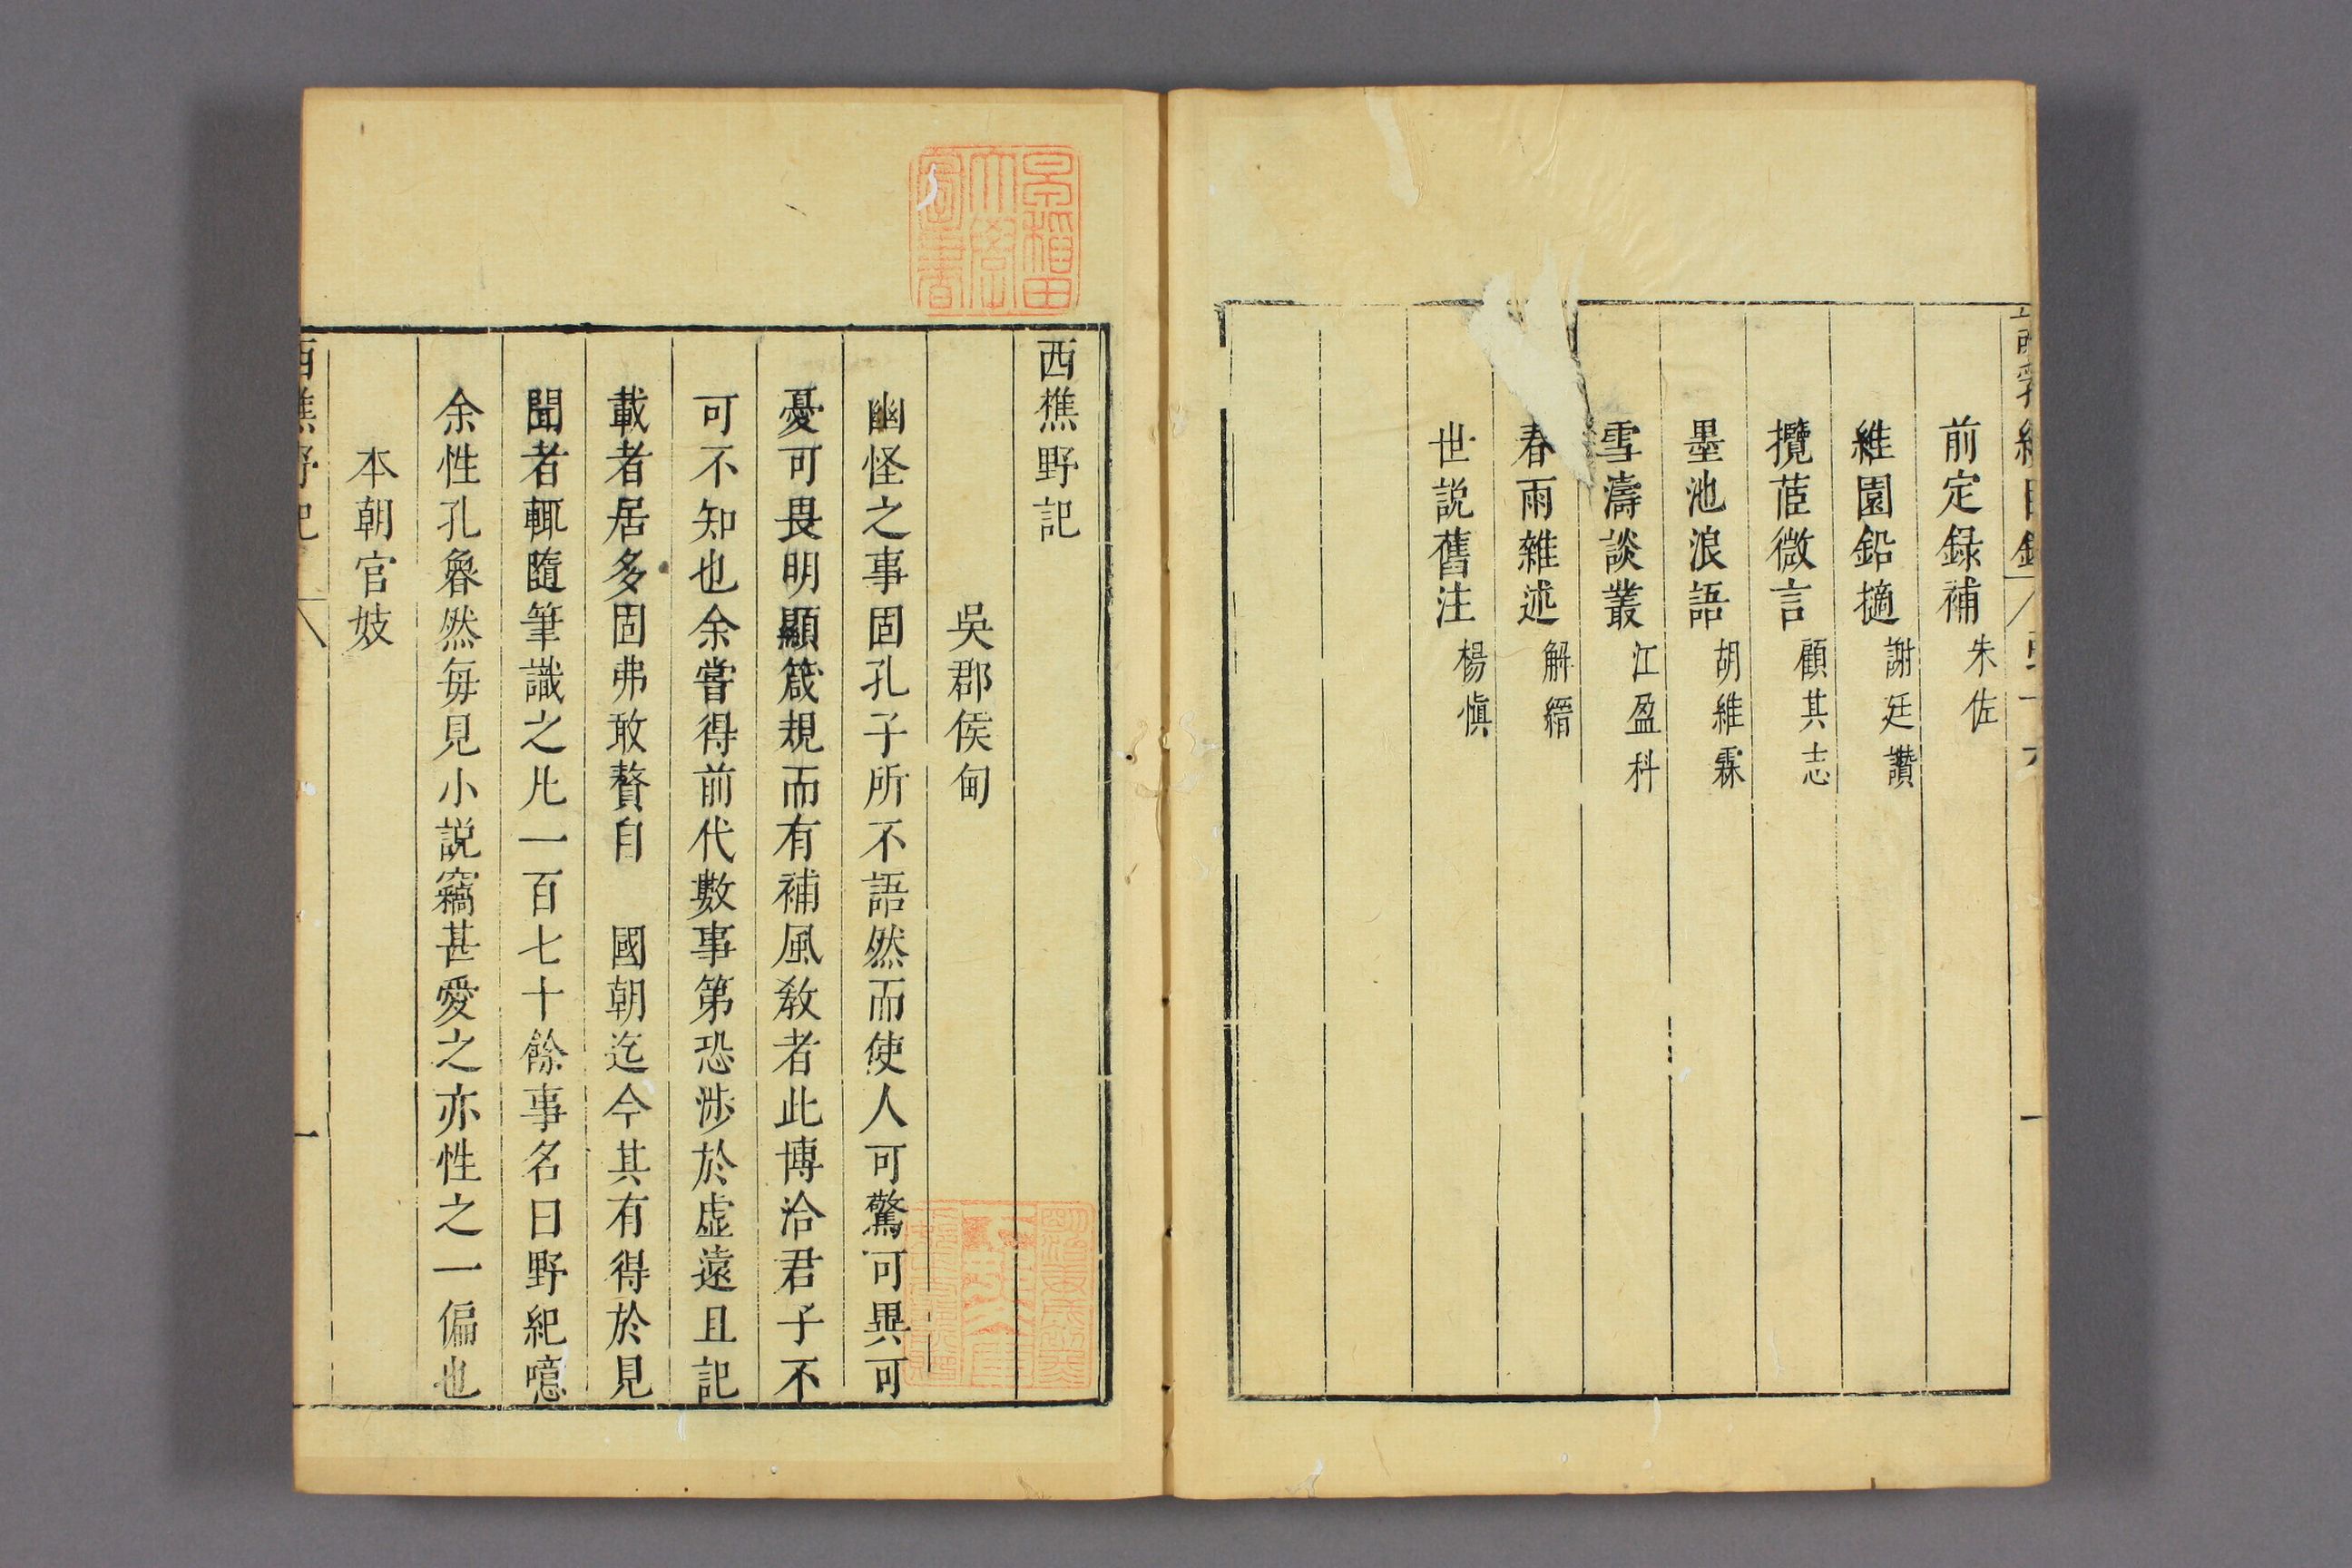 前定録補 朱佐
維園鉛摘 謝廷讚
攬茝微言 顧其志
墨池浪語 胡維霖
雪濤談叢 江盈科
春雨雜述 解縉
世説舊注 楊慎
西樵野記
吳郡侯甸
幽怪之事固孔子所不語然而使人可驚可異可
憂可畏明顯箴規而有補風教者此博洽君子不
可不知也余嘗得前代數事第恐涉於虛遠且記
載者居多固弗敢贅自　國朝迄今其有得於見
聞者輒隨筆識之凡一百七十餘事名曰野紀噫
余性孔魯然每見小説竊甚愛之亦性之一偏也
本朝官妓
西樵野記 一
早稲田
大學
圖書